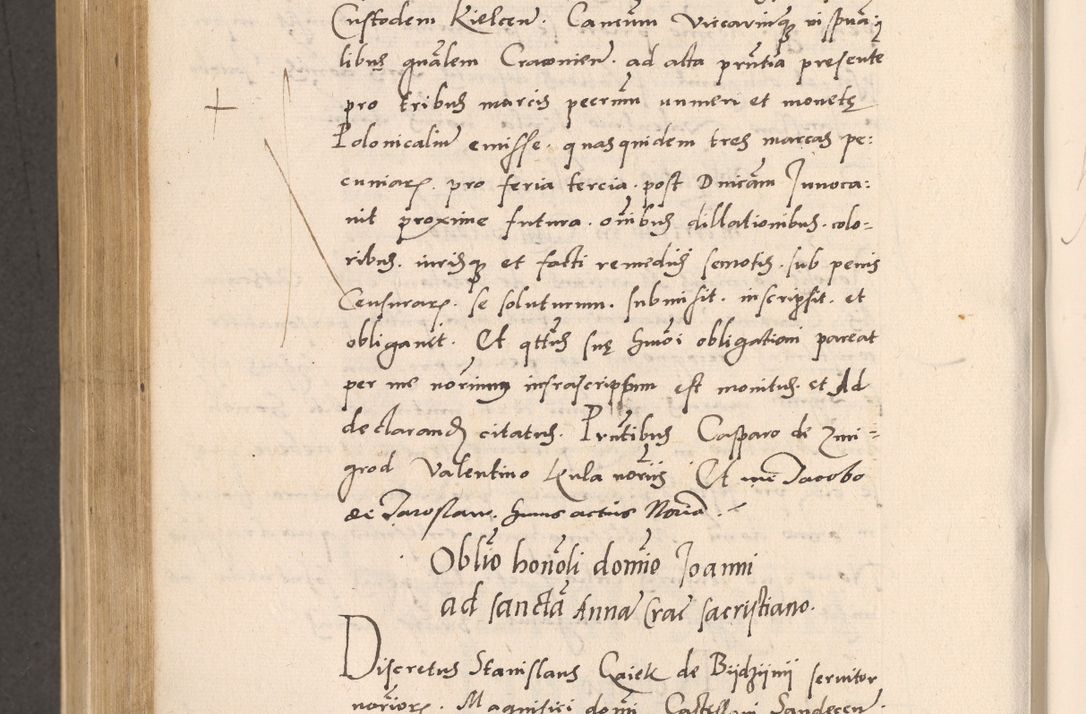 Custodem Kielcen̄. Causum Vicariumq̷ in spūa:
libus gnālem Cracovien̄. ad acta prn̄tia presente
pro tribus marcis pecunn̄ numeri et monetę
Polonicaliū emisse. quasquidem tres marcas pe:
cuniaꝝ. pro feria tercia. post Dnicam Invoca:
vit proxime futura. oībus dillationibus. colo=
ribus. iurisq̷ et facti remediis semotis. sub penis
Censuraꝝ. se soluturum. submisit. inscripsit. et
obligavit. Et qtēus suę hmōi obligationi pareat
per me notarium infrascriptum est monitus. et Ad
declarand̄ citatus. Prn̄tibus Casparo de Zmi=
grod Valentino Kula notriis Et me Jacobo
de Jaroslaw. huius actus Notrio.
Oblio honōli domīo Joanni
ad sanctā Annā Crac̄ sacristiano.
Discretus Stanislaus Gaiek de Bijdzijnij servitor
notrioꝝ. Magnifici domī Castellani Sandecen̄.